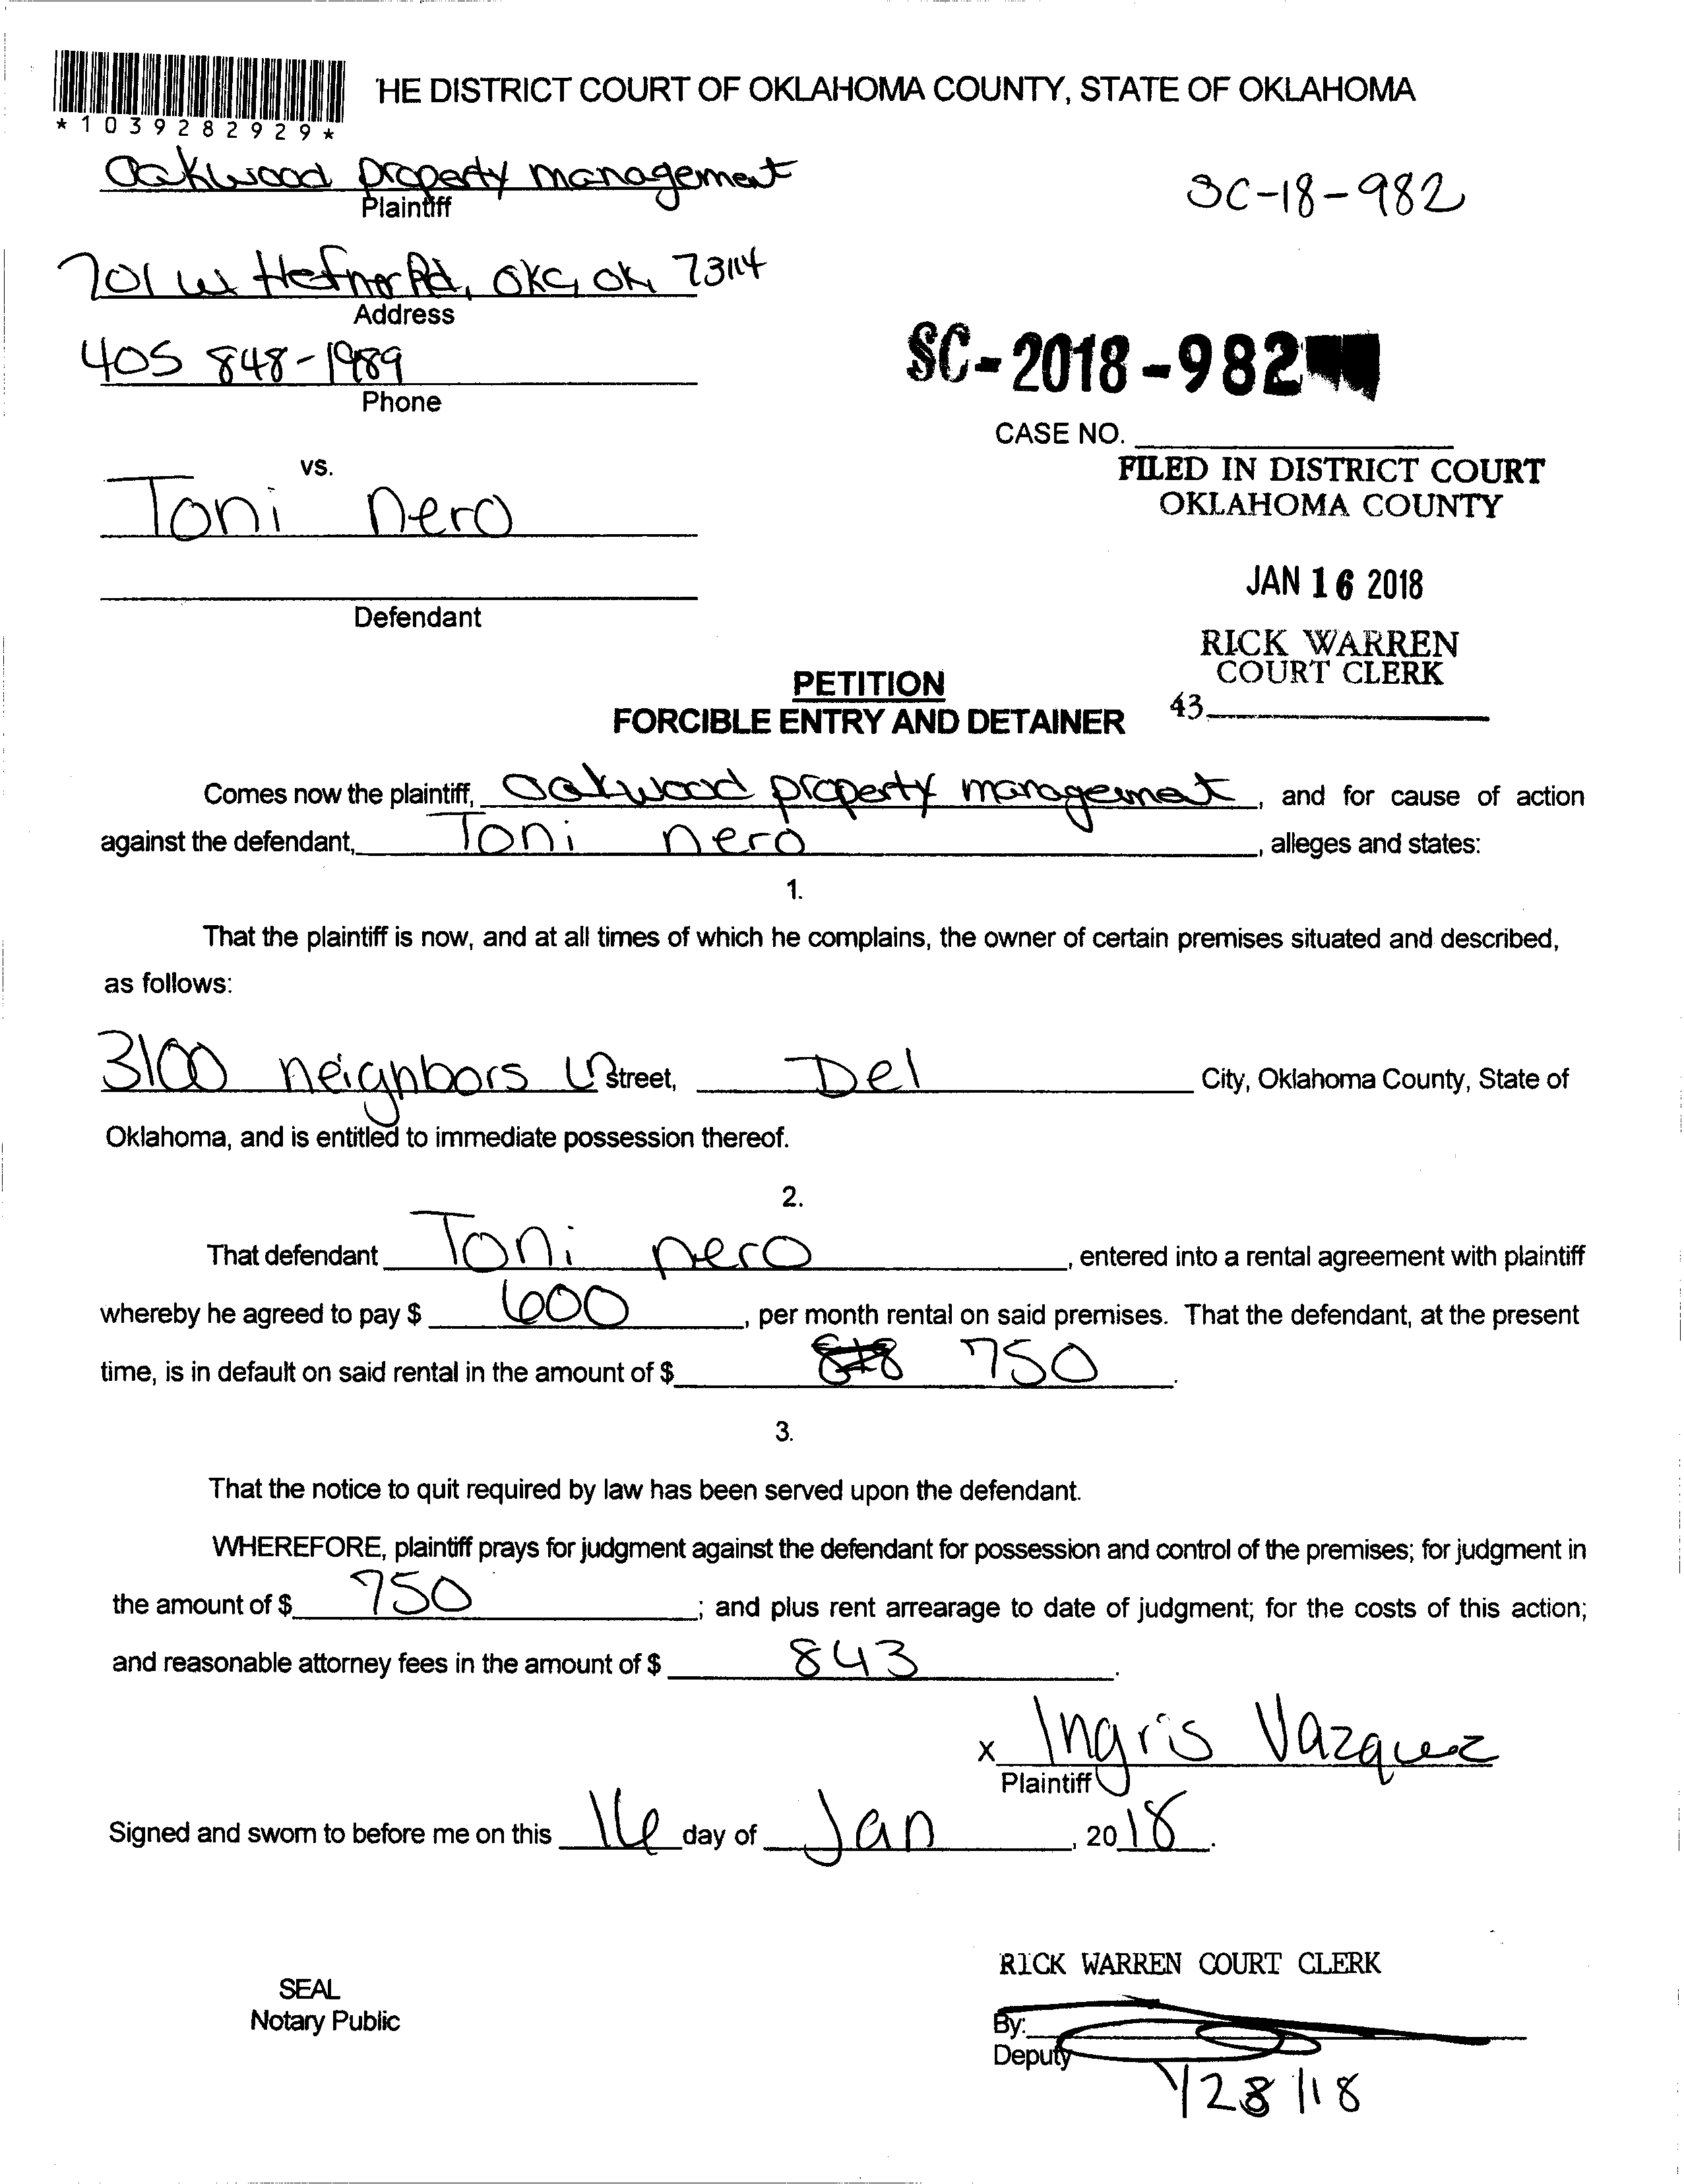 'HE DISTRICT COURT OF OKLAHOMA COUNTY, STATE OF OKLAHOMA
*1039282929*
Oakwood property management
Plaintiff
SC-18-982
701 W Hefner Rd, OKC, OK, 73114
Address
405 848-1989
Phone
SC-2018-982
CASE NO.
vs.
FILED IN DISTRICT COURT
OKLAHOMA COUNTY
Toni nero
JAN 16 2018
Defendant
RICK WARREN
COURT CLERK
43
PETITION
FORCIBLE ENTRY AND DETAINER
Comes now the plaintiff, Oakwood property management, and for cause of action
against the defendant, Toni nero, alleges and states:
1.
That the plaintiff is now, and at all times of which he complains, the owner of certain premises situated and described,
as follows:
3100 neighbors Ln Street, Del City, Oklahoma County, State of
Oklahoma, and is entitled to immediate possession thereof.
2.
That defendant Toni nero, entered into a rental agreement with plaintiff
whereby he agreed to pay $ 600, per month rental on said premises. That the defendant, at the present
time, is in default on said rental in the amount of $ 750.
3.
That the notice to quit required by law has been served upon the defendant.
WHEREFORE, plaintiff prays for judgment against the defendant for possession and control of the premises; for judgment in
the amount of $ 750; and plus rent arrearage to date of judgment; for the costs of this action;
and reasonable attorney fees in the amount of $ 843.
x Ingris Vazquez
Plaintiff
Signed and sworn to before me on this 16 day of Jan, 2018.
RICK WARREN COURT CLERK
SEAL
Notary Public
By:
Deputy